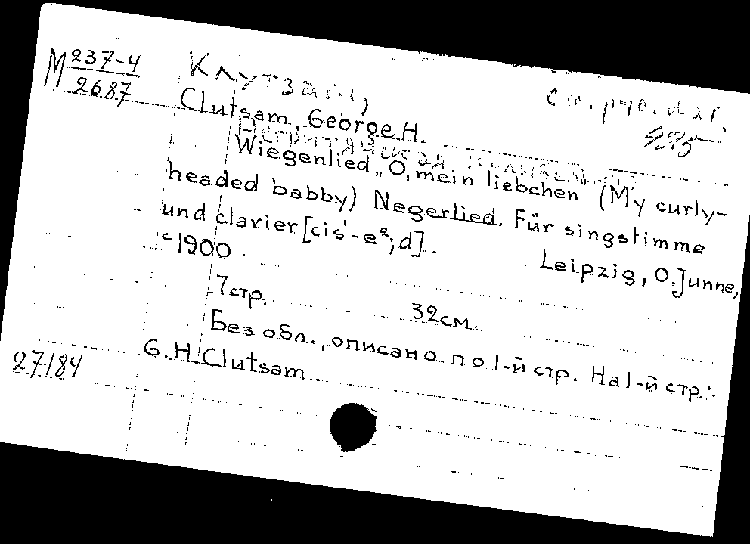 М 237-4
2687
Клутзам,
Сп. рус. яз.
Clutsam, George H.
Wiegenlied „O, mein liebchen (My curly-
headed babby) Negerlied. Für singstimme
und clavier [cis'-e²; d].
Leipzig, O. Junne,
c1900
7 стр. 32 см.
Без обл., описано по 1-й стр. На 1-й стр.:
G. H. Clutsam
27184